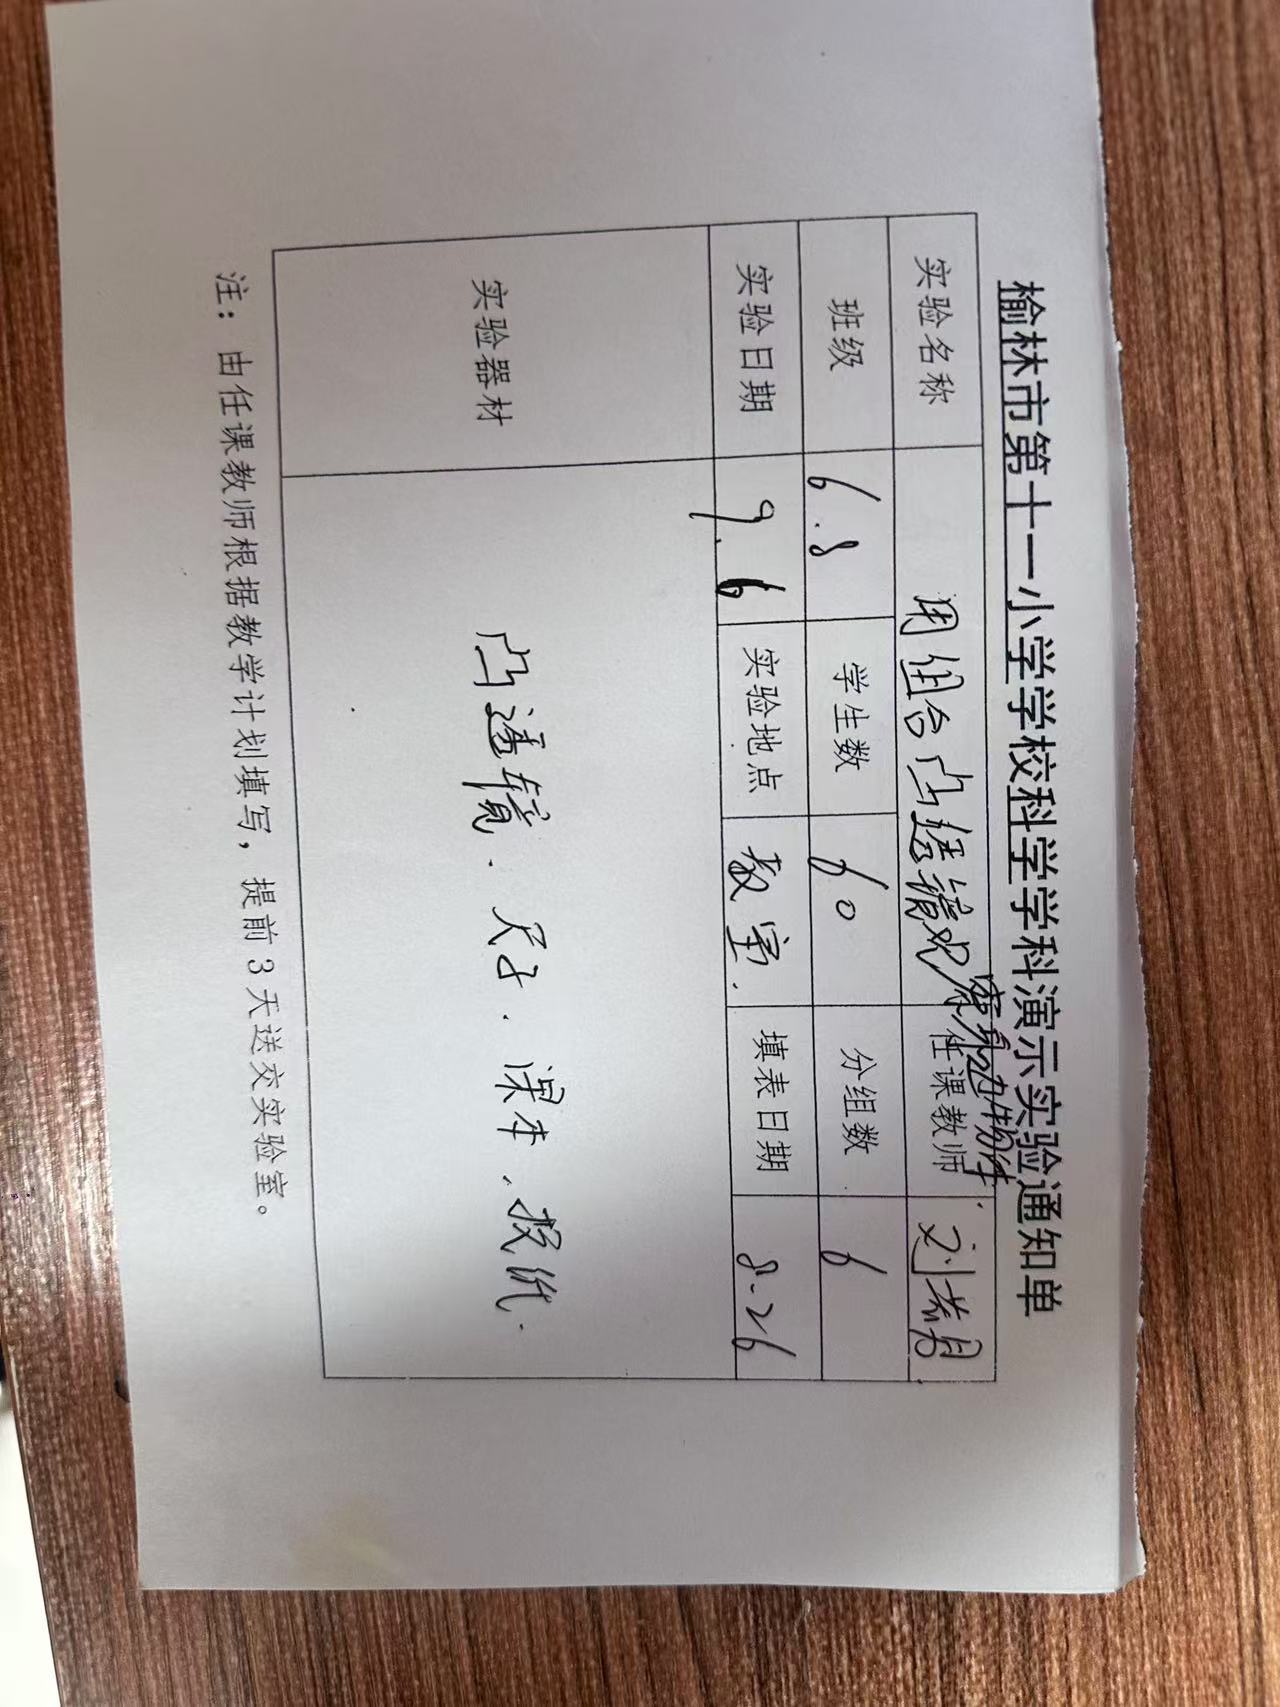 榆林市第十一小学学校科学学科演示实验通知单
实验名称 用组合凸透镜观察身边物体 任课教师 刘
班级 6.8 学生数 60 分组数 6
实验日期 9.6 实验地点 教室. 填表日期 8-26
实验器材 凸透镜.尺子.课本、报纸.
注：由任课教师根据教学计划填写，提前3天送交实验室。